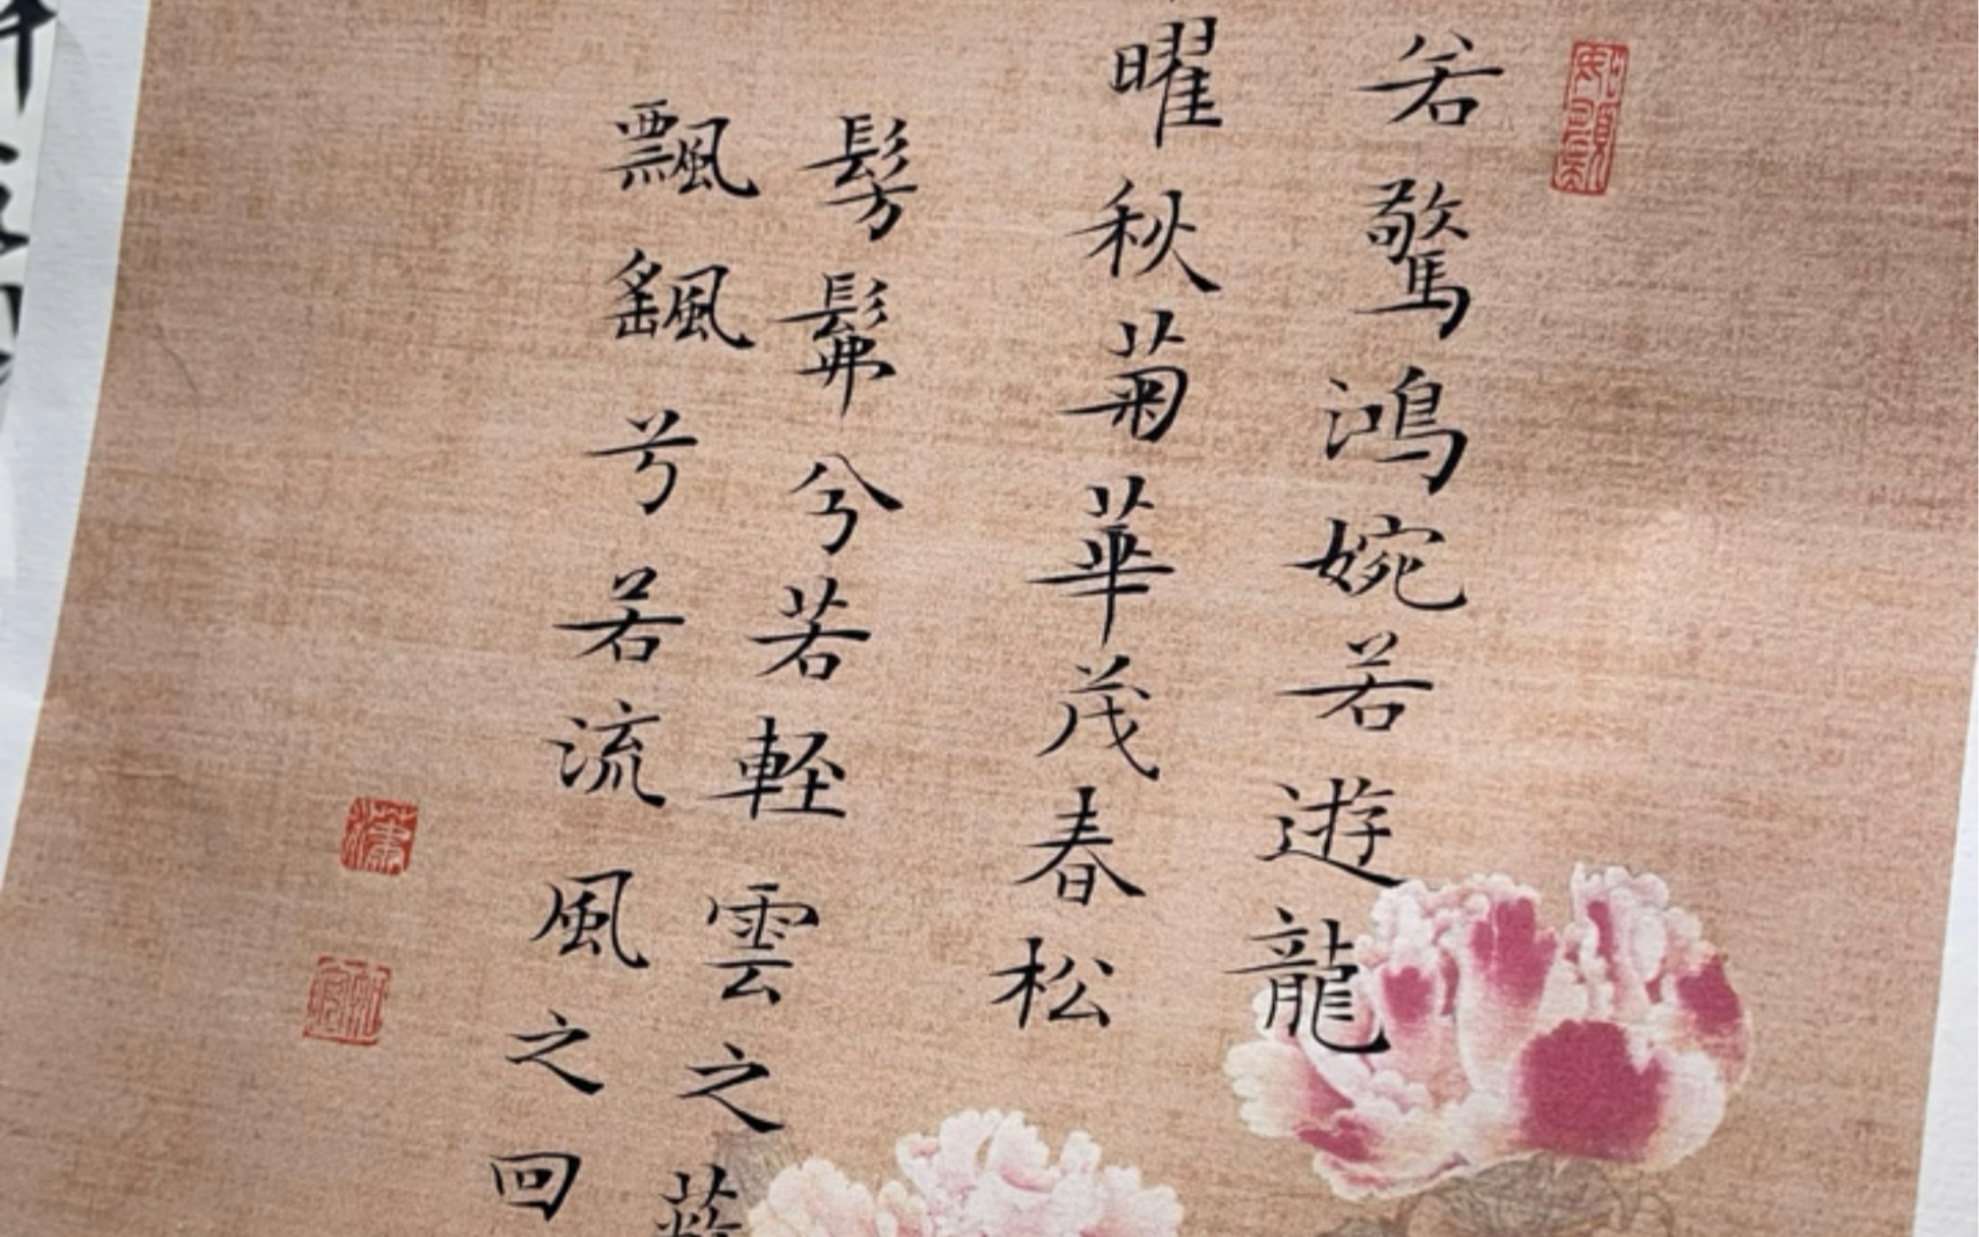 若驚鴻婉若遊龍
曜秋菊華茂春松
髣髴兮若軽雲之蔽
飄颻兮若流風之回